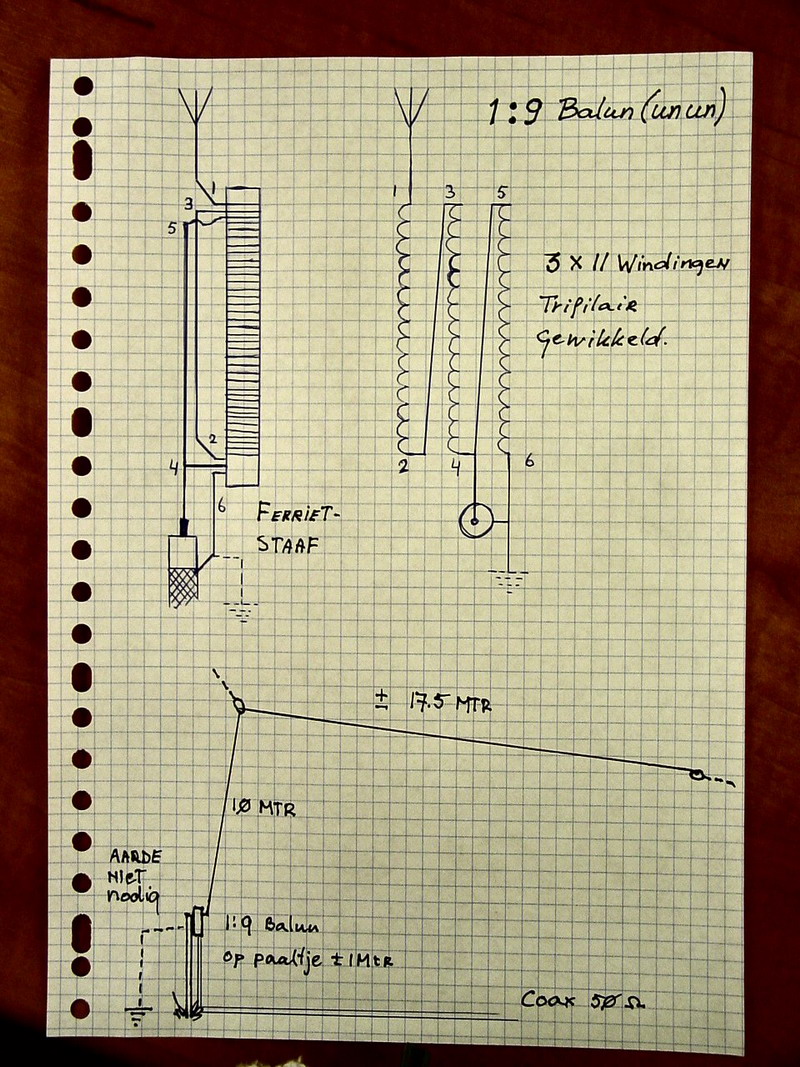 1:9 Balun (unun)
1
3
5
2
4
6
FERRIET-
STAAF
1
3
5
2
4
6
3 x 11 Windingen
Trifilair
Gewikkeld.
± 17.5 MTR
10 MTR
AARDE
NIET
nodig
1:9 Balun
op paaltje ± 1 Mtr
Coax 50 Ω